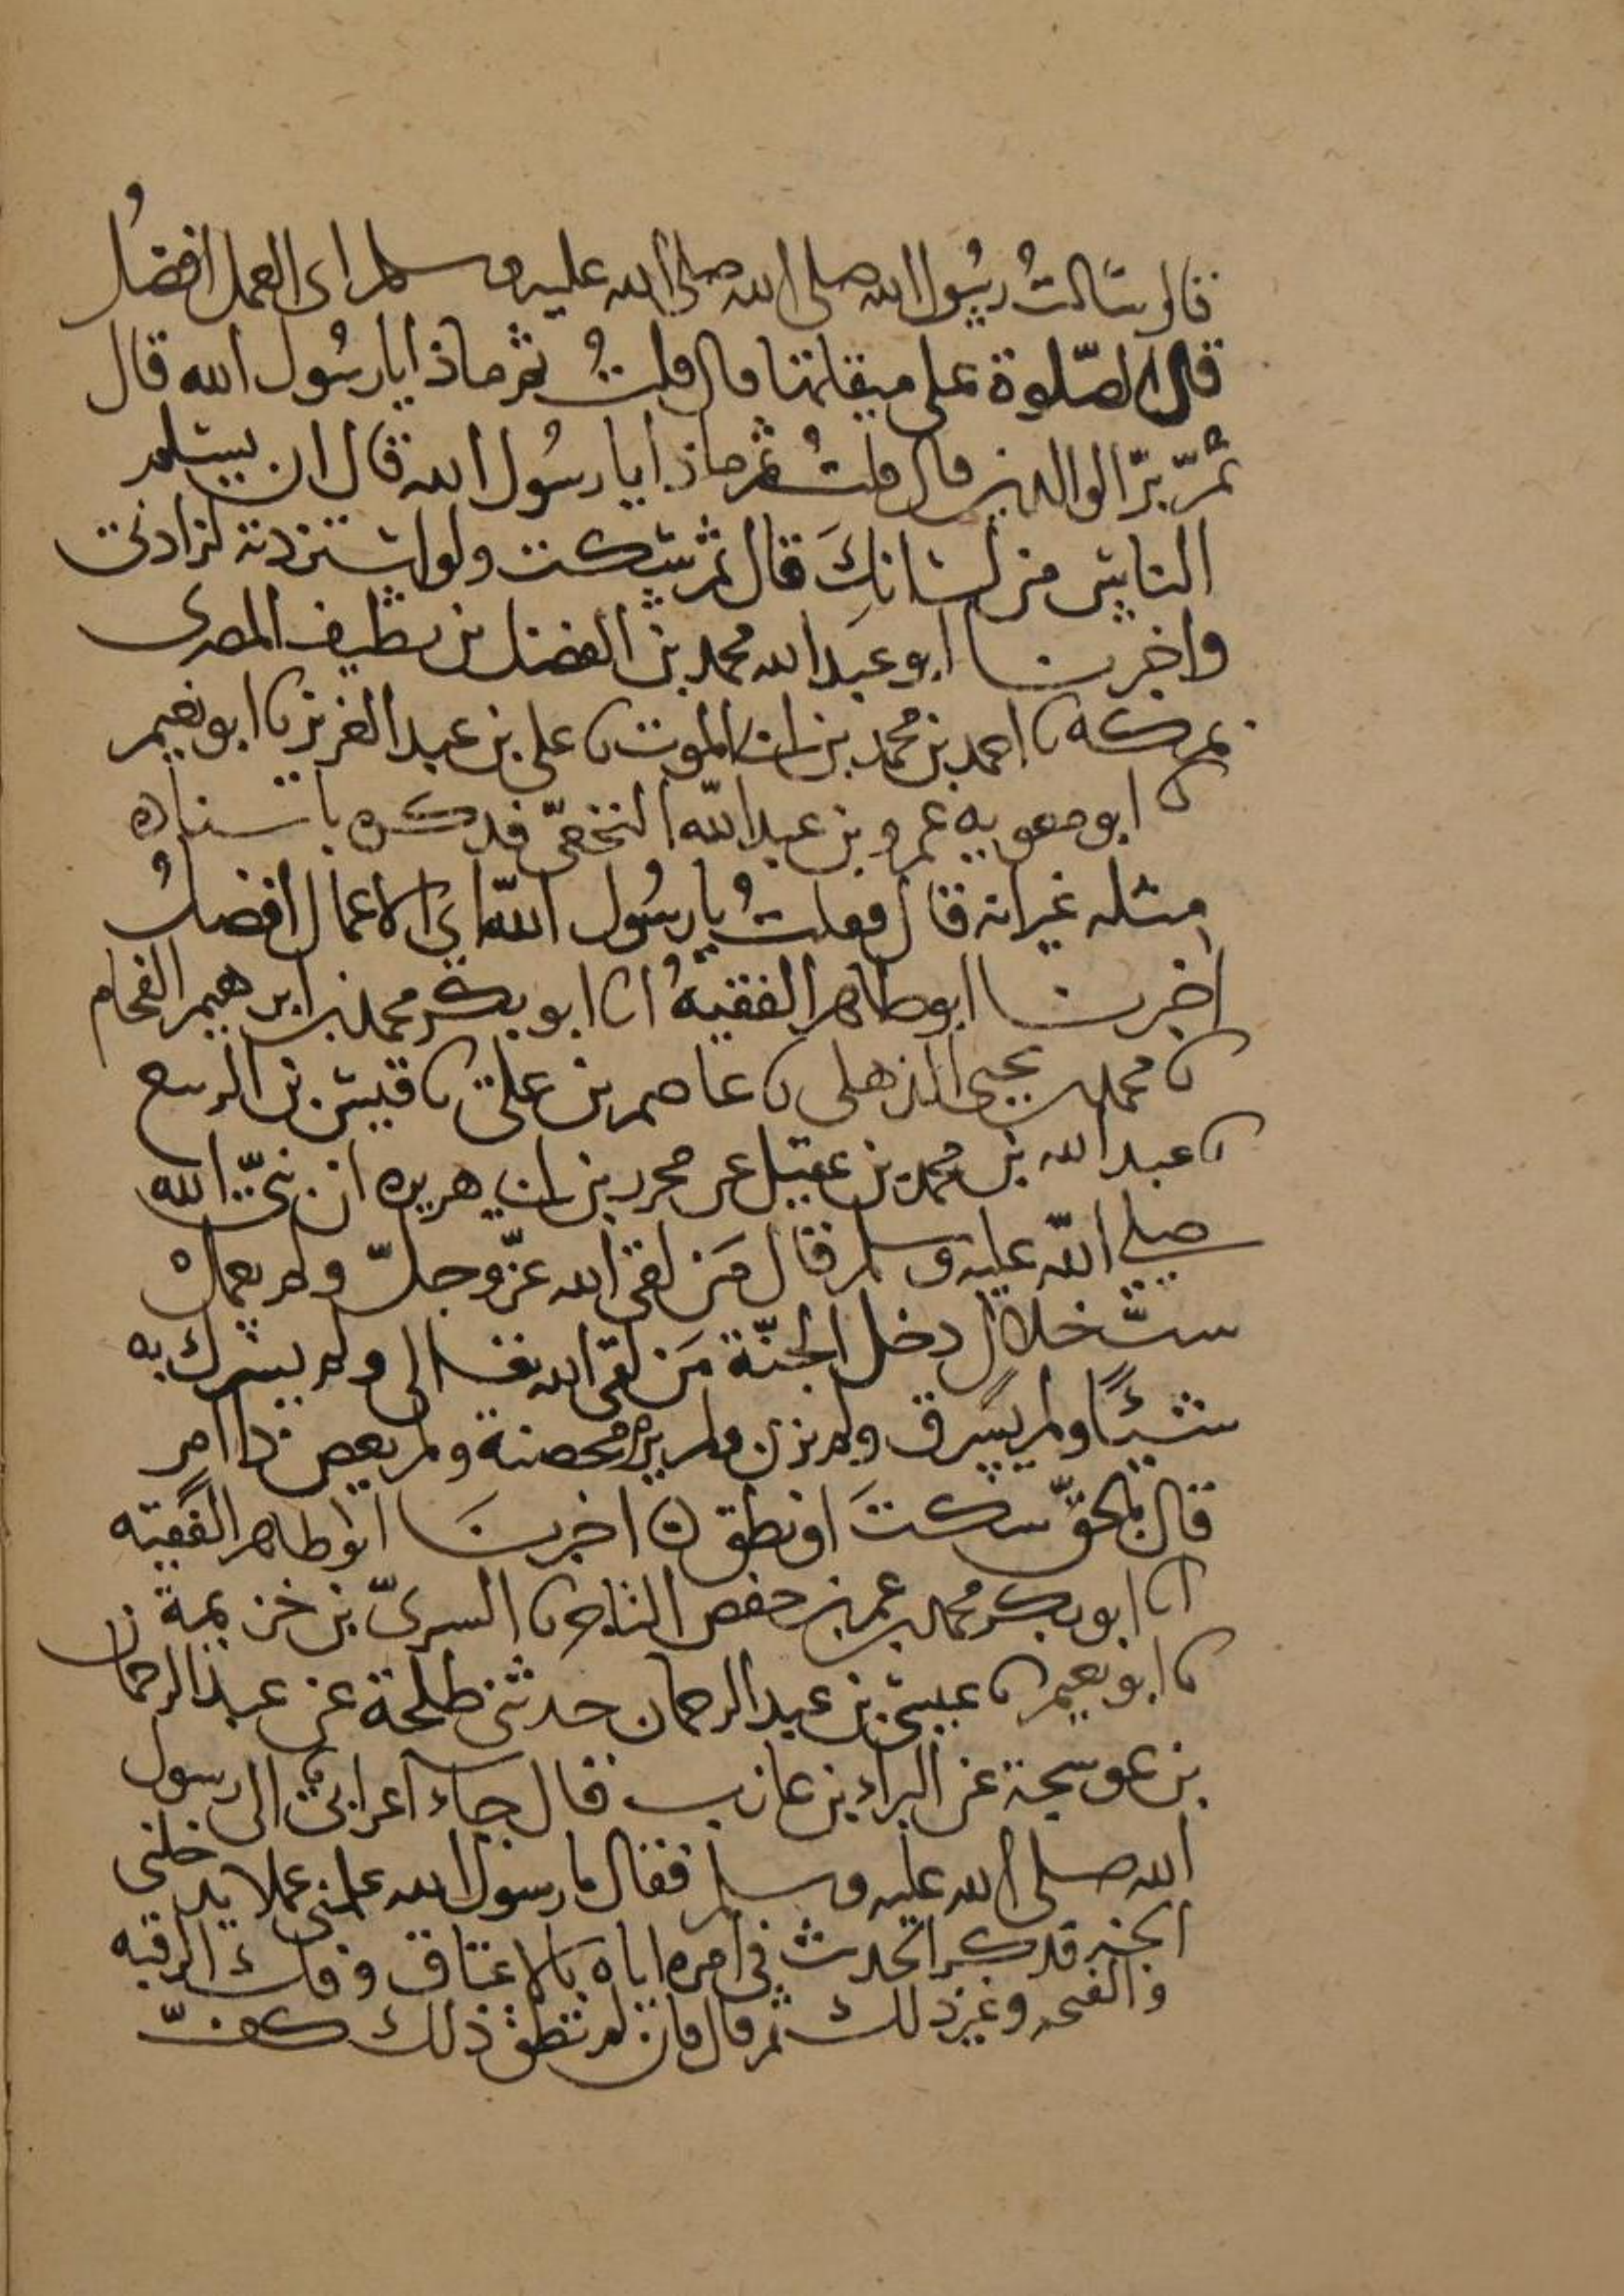 قال سَالتُ رسُول الله صلى الله صلى الله عليه وسلم اى العمل افضلُ
قال الصّلوة على ميقاتها قال قلتُ ثم ماذا يا رسُول الله قال
ثمّ برّ الوالدين قال قلتُ ثم ماذا يا رسُول الله قال ان يسلم
الناس من لسانكَ قال ثم سكت ولو استزدته لزادنى
واخبرنا ابو عبد الله محمد بن الفضل بن نظيف المصرى
بمكه نا احمد بن محمد بن ابى الموت نا على بن عبد العزيز نا ابو نعيم
نا ابو معويه عمرو بن عبد الله النخعىّ فذكره باسناده
مثله غير انه قال فقلتُ يا رسُول الله اىّ الاعمال افضلُ
اخبرنا ابو طاهر الفقيهُ انا ابو بكر محمد بن ابرهيم الفحام
نا محمد بن يحيى الذهلى نا عاصم بن على نا قيس بن الربيع
نا عبد الله بن محمد بن عقيل عن محرر بن ابى هريره ان نبىّ الله
صلى الله عليه وسلم قال مَن لقى الله عزّ وجلّ ولم يعمل
ستّ خلال دخل الجنّة مَن لقى الله تعالى ولم يشرك به
شيئًا ولم يسرق ولم يزن ولم يرم محصنة ولم يعص ذا امر
قال بالحقّ سكتَ او نطق ن اخبرنَا ابو طاهر الفقيه
انا ابو بكر محمد بن عمر بن حفص التاجر نا السرىّ بن خزيمة
نا ابو نعيم نا عيسى بن عبد الرحمان حدثنى طلحة عن عبد الرحمان
بن عوسجة عن البراء بن عازب قال جاء اعرابىّ الى رسول
الله صلى الله عليه وسلم فقال يا رسول الله علمنى عملا يدخلنى
الجنه فذكر الحديث فى امره اياه بالاعتاق وفك الرقبه
والمنحه وغير ذلك ثم قال فان لم تطق ذلك فكفّ